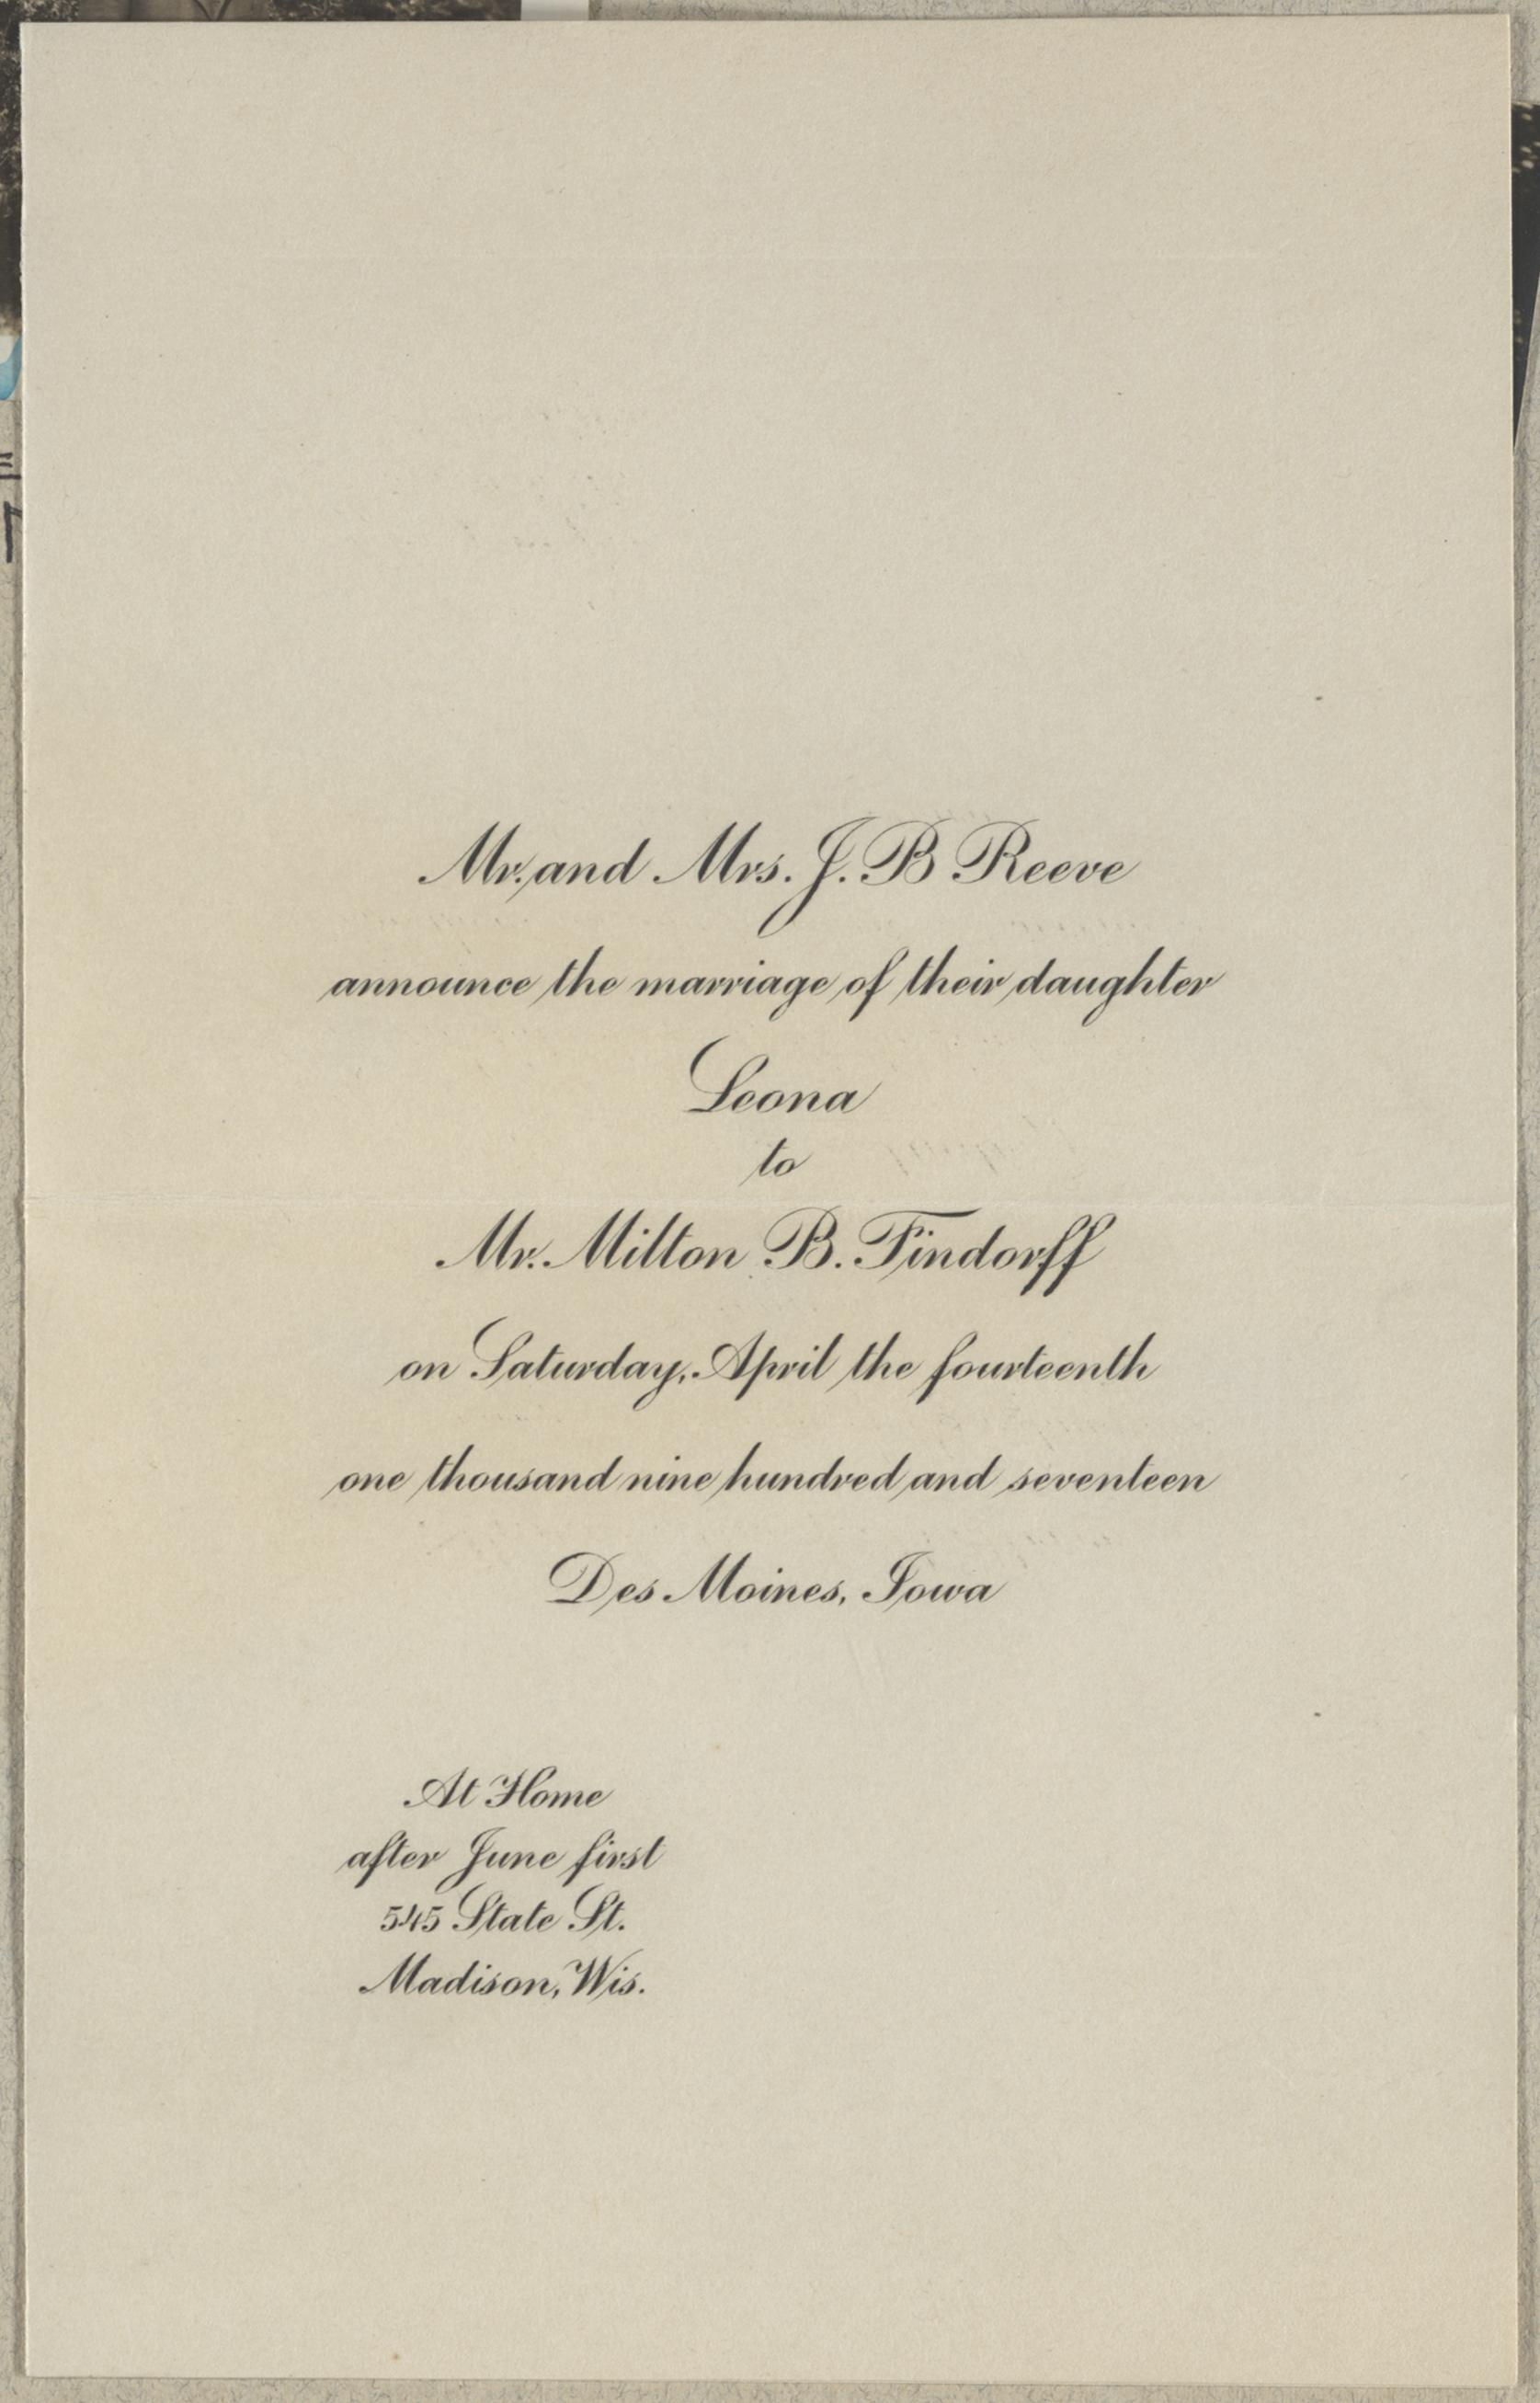 Mr. and Mrs. J. B Reeve
announce the marriage of their daughter
Leona
to
Mr. Milton B. Findorff
on Saturday, April the fourteenth
one thousand nine hundred and seventeen
Des Moines, Iowa
At Home
after June first
545 State St.
Madison, Wis.